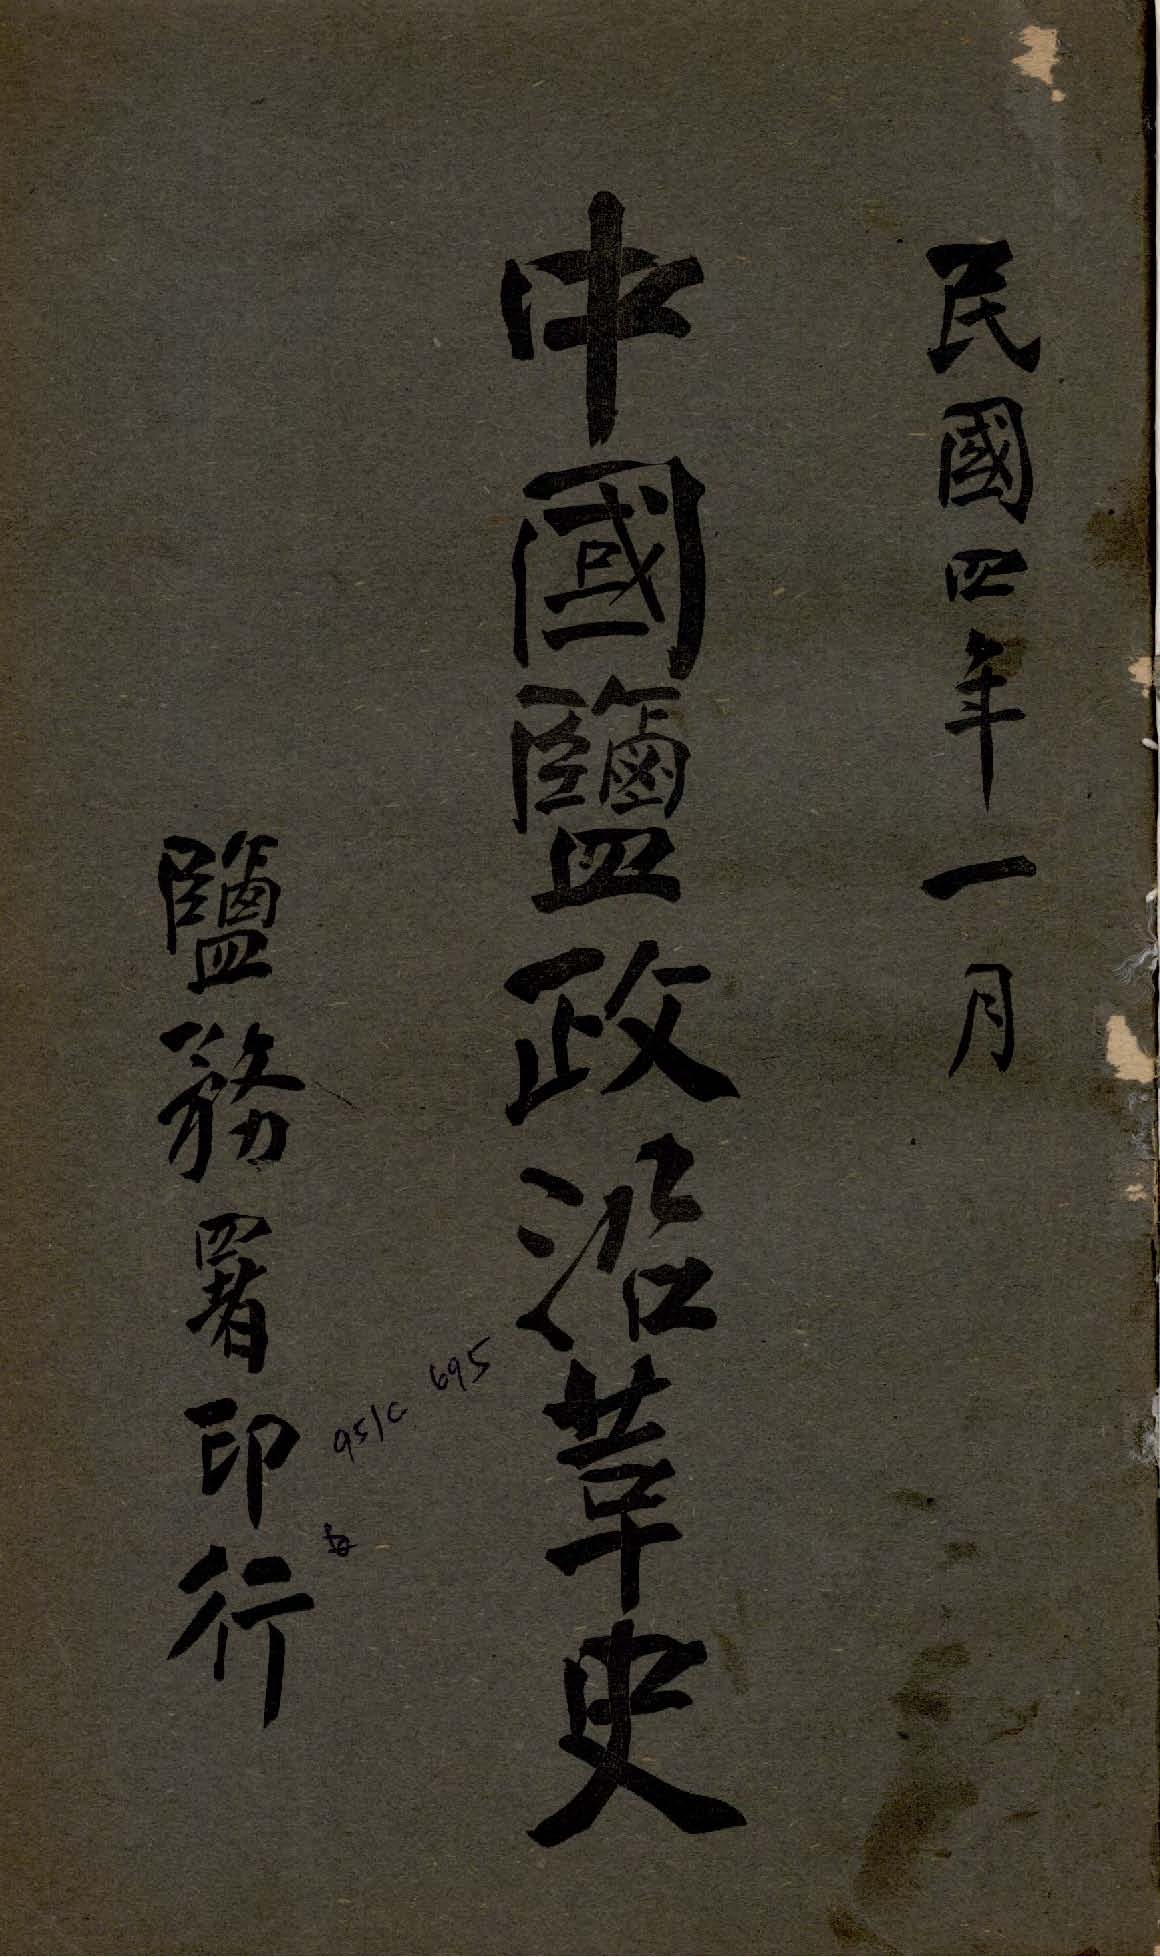 民國四年一月
中國鹽政沿革史
鹽務署印行
951C 695